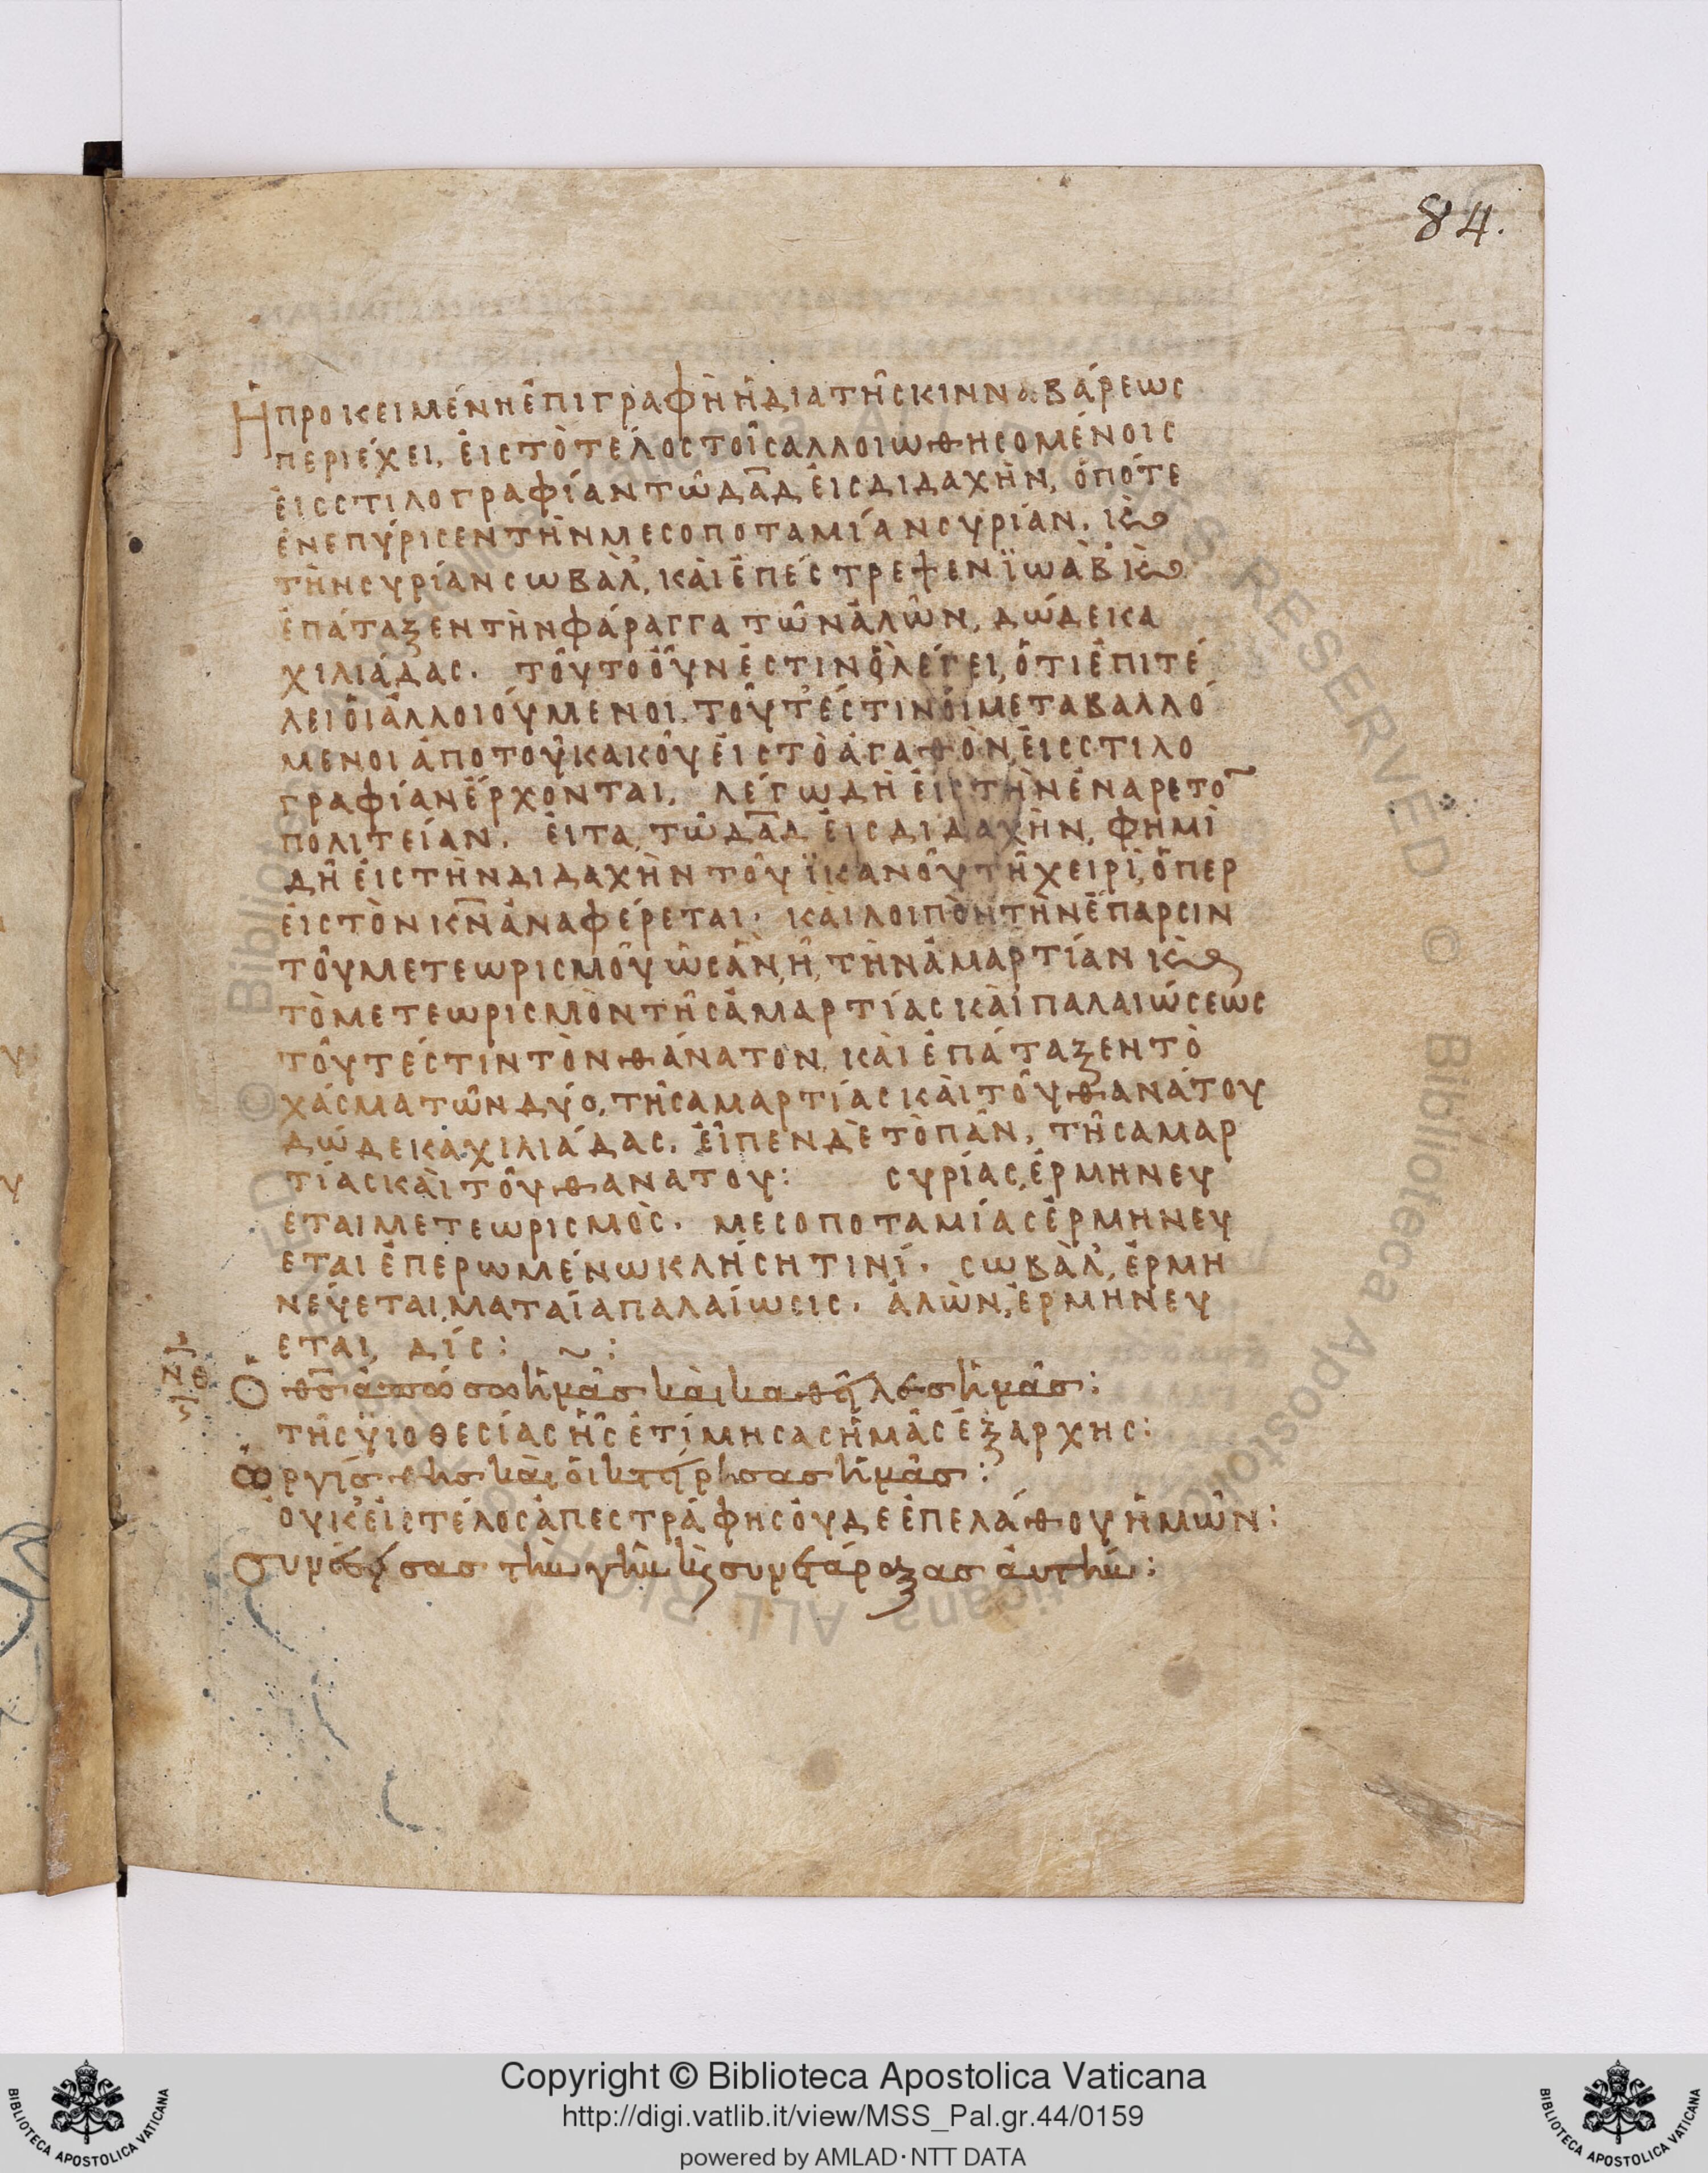 84.
Ἡ προκειμένη ἐπιγραφὴ ἡ δια τῆς κινναβάρεως
περιέχει, ἐις τὸ τέλος τοῖς αλλοιωθησομένοις
ἐις στιλογραφίαν τῶ δα̅δ ἐις διδαχὴν, ὁπότε
ἐνεπύρισεν τὴν μεσοποταμίαν συρίαν. κὲ
τὴν συρίαν σωβὰλ, κὰι ἐπέστρεψεν ϊωὰβ κὲ
ἐπάταξεν τὴν φάραγγα τῶν ἁλῶν, δώδεκα
χιλιάδας. τοῦτο οὖν ἐστιν ὃ λέγει, ὅτι ἐπι τέ
λει ὁι ἀλλοιούμενοι. τοῦτ' ἐστιν ὁι μεταβαλλό
μενοι ἀπο τοῦ κακοῦ ἐις τὸ ἀγαθὸν, ἐις στιλο
γραφίαν ἔρχονται. λέγω δὴ ἐις τὴν ἐνάρετο͂
πολιτείαν. ἐιτα, τῶ δα̅δ ἐις διδαχὴν, φημὶ
δὴ ἐις τὴν διδαχὴν τοῦ ϊκανοῦ τῆ χειρὶ, ὅπερ
ἐις τὸν κ̅ν̅ ἀναφέρεται. και λοιπὸν τὴν ἔπαρσιν
τοῦ μετεωρισμοῦ ὡσὰν, ἢ, τὴν ἁμαρτίαν κὲ
τὸ μετεωρισμὸν τῆς ἁμαρτίας κὰι παλαιώσεως
τοῦτέστιν τὸν θάνατον, κὰι ἐπάταξεν τὸ
χάσμα τῶν δύο, τῆς αμαρτίας κὰι τοῦ θανάτου
δώδεκα χιλιάδας. ἐῖπεν δὲ τὸ πᾶν, τῆς αμαρ
τίας κὰι τοῦ θανατου: συρίας, ἑρμηνευ
εται μετεωρισμὸς. μεσοποταμίας ἑρμηνευ
εται ἐπερωμένω κλήση τινί. σωβὰλ, ἑρμη
νεύεται, ματαία παλαίωσις. ἁλὼν, ἑρμηνευ
εται, δίς: ~:
νθ
Ὁ θ̅ς̅ ἀπώσω ἡμᾶς κὰι καθῆλες ἡμᾶς:
τῆς ϋιοθεσίας ἧς ἐτίμησας ἡμᾶς ἐξαρχης:
Ὠργίσθης κὰι ὀικτήρησας ἡμᾶς:
ὀυκ ἐις τέλος ἀπεστράφης ὀυδε ἐπελάθου ἡμῶν:
Συνέσησας τὴν γῆν κ̀ συνετάραξας ἀυτὴν:
Copyright © Biblioteca Apostolica Vaticana
http://digi.vatlib.it/view/MSS_Pal.gr.44/0159
powered by AMLAD·NTT DATA
BIBLIOTECA APOSTOLICA VATICANA
BIBLIOTECA APOSTOLICA VATICANA